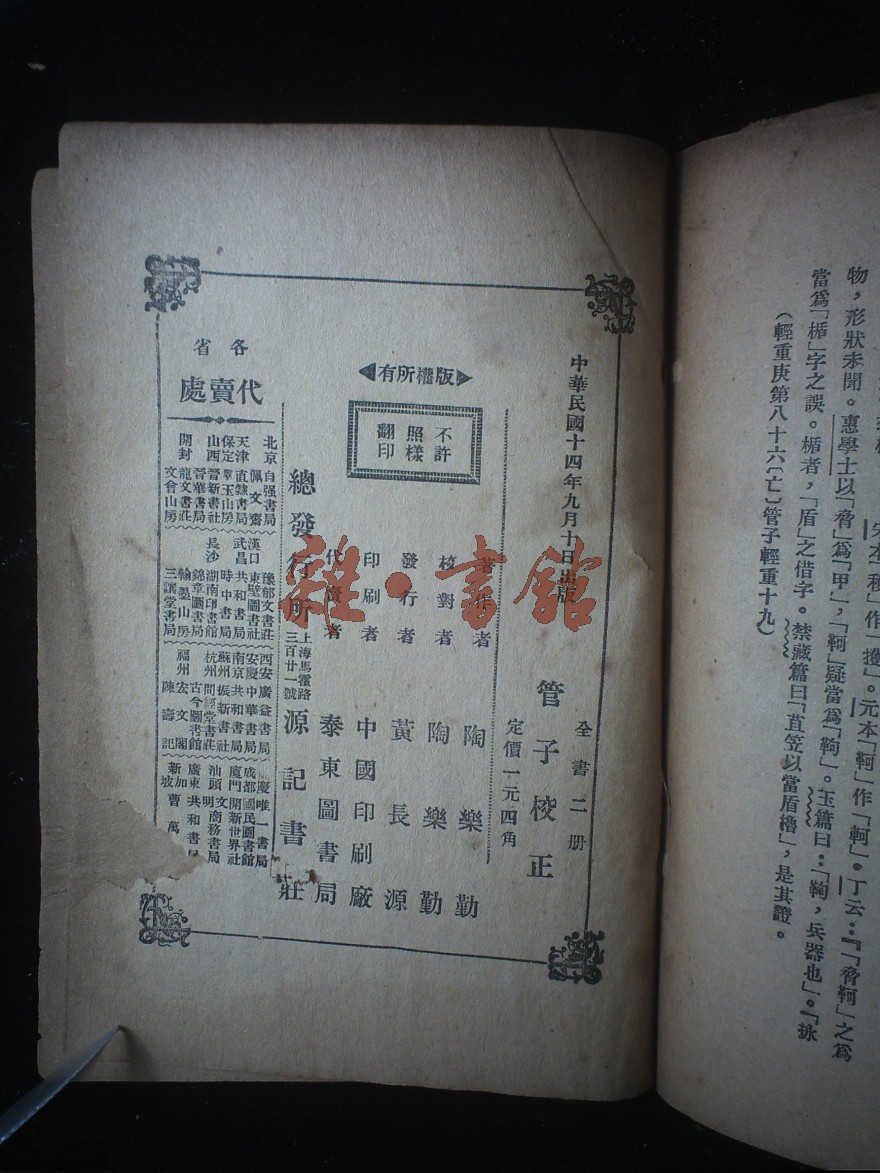 物，形狀未聞。惠學士以「脅」爲「甲」，「鞆」疑當爲「鞫」。玉篇曰：「鞫，兵器也」。「詠
當爲「楯」字之誤。楯者，「盾」之借字。禁藏篇曰「苴笠以當盾櫓」，是其證。
（輕重庚第八十六〔亡〕管子輕重十九）
中華民國十四年九月十日出版
全書二册
管子校正
定價一元四角
版權所有
不許
照樣
翻印
著作者 陶樂勤
校對者 陶樂勤
發行者 黃長源
印刷者 中國印刷廠
代賣者 泰東圖書局
總發行所 上海馬霍路三百廿一號 源記書莊
各省
代賣處
北京 自强書局
佩文齋
天津 直隸書局
保定 羣玉山房
山西 晉新書社
晉華書局
開封 龍文書莊
文會山房
豫郁文書莊
漢口 東壁圖書社
武昌 共和書局
時中書局
長沙 湖南印書館
錦章圖書局
翰墨山房
三讓堂書局
西安 廣益書局
安慶 中華書局
南京 共和書局
蘇州 振新書社
杭州 問經堂書莊
古今圖書館
福州 宏文閣
陳壽記
慶唯一書局
成都 國民圖書館
廈門 開新世界社
汕頭 文明商務書局
廣東 共和書局
新加坡 曹萬
雜·書館